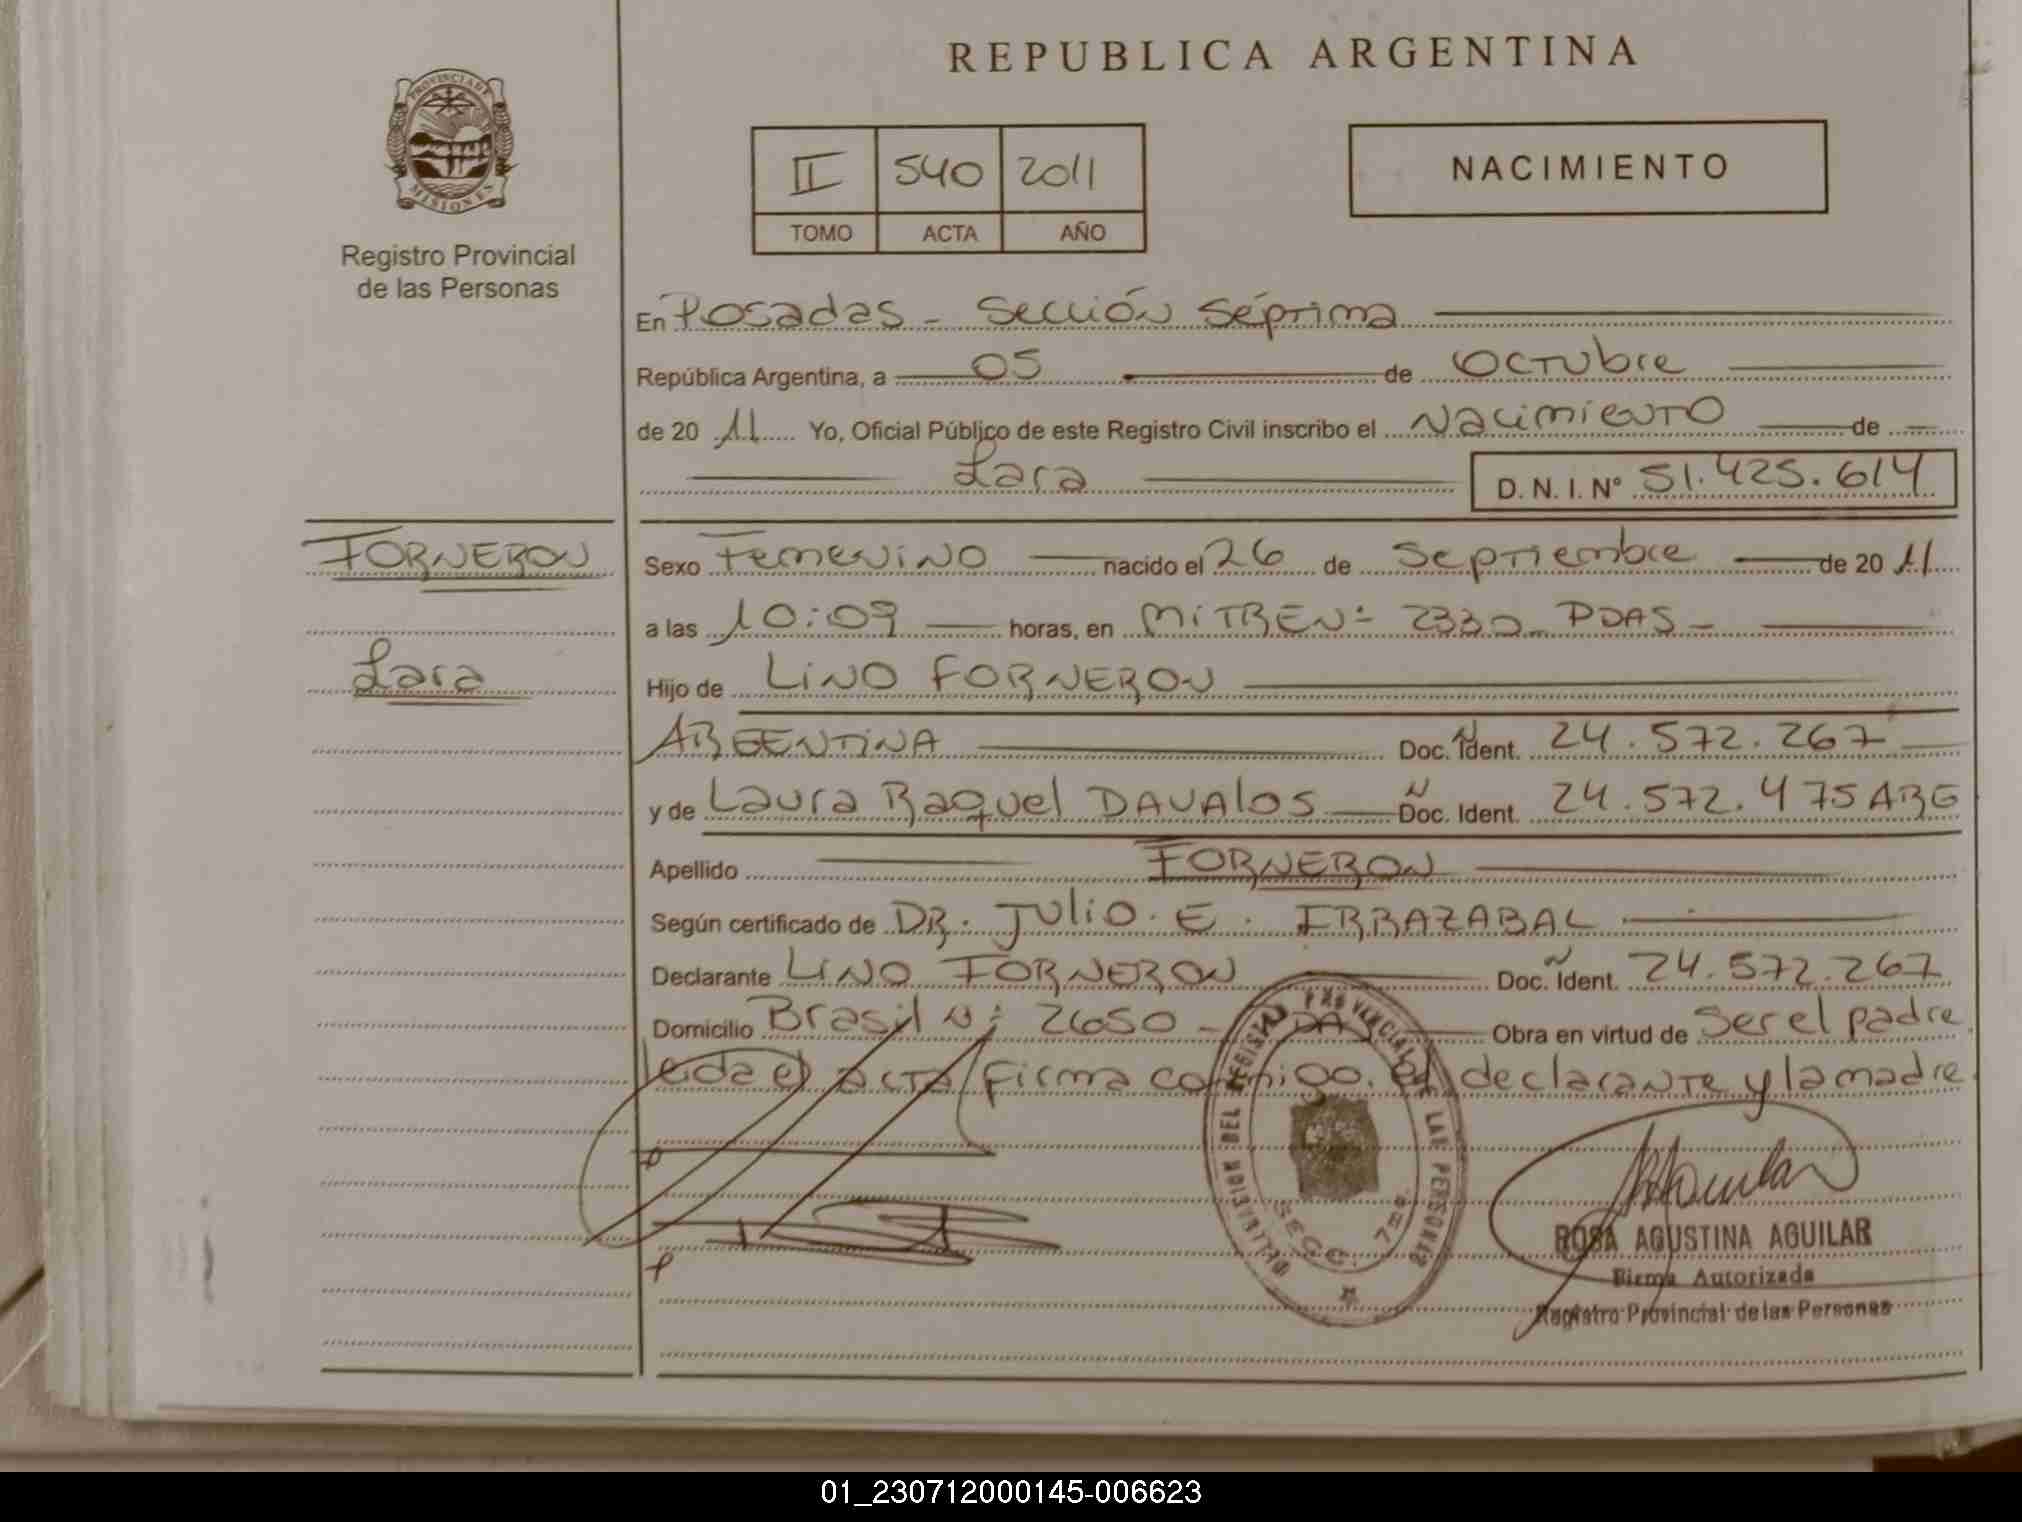 REPUBLICA ARGENTINA
PROVINCIA DE
MISIONES
Registro Provincial
de las Personas
II 540 2011
TOMO ACTA AÑO
NACIMIENTO
En Posadas - Sección Séptima
República Argentina, a 05 de Octubre
de 20 11 Yo, Oficial Público de este Registro Civil inscribo el Nacimiento de
Lara D. N. I. Nº 51.425.614
FORNERON
Lara
Sexo Femenino nacido el 26 de Septiembre de 20 11
a las 10:09 horas, en MITRE Nº 2330 - PDAS -
Hijo de LINO FORNERON
ARGENTINA Doc. Ident. 24.572.267
y de Laura Raquel DAVALOS Doc. Ident. 24.572.475 ARG
Apellido FORNERON
Según certificado de DR. JULIO. E. IRRAZABAL
Declarante LINO FORNERON Doc. Ident. 24.572.267
Domicilio Brasil Nº 2650 - PDAS Obra en virtud de Ser el padre
leida el acta firma conmigo. el declarante y la madre.
DEL REGISTRO PROVINCIAL DE LAS PERSONAS
SECC. 7ma.
ROSA AGUSTINA AGUILAR
Firma Autorizada
Registro Provincial de las Personas
01_230712000145-006623